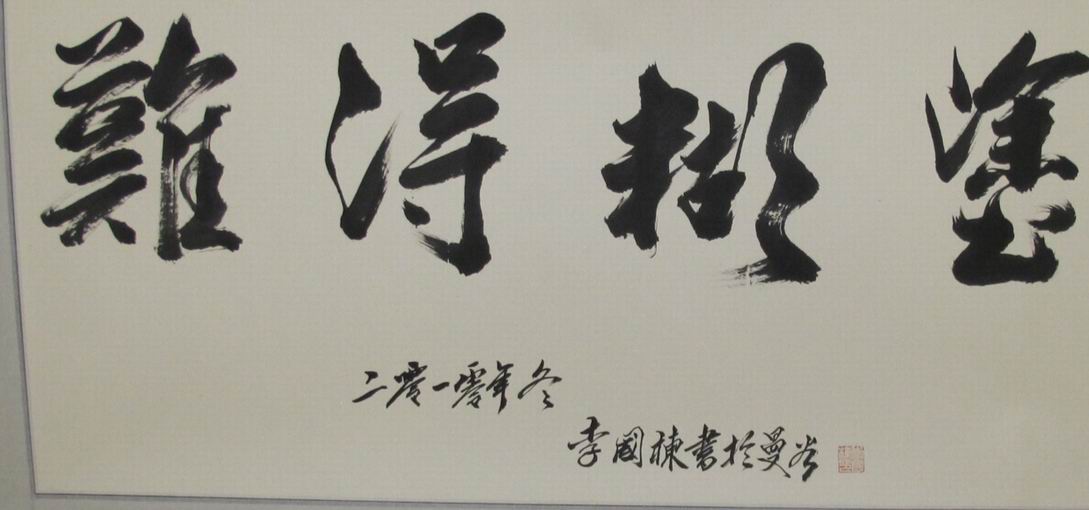 難得糊塗
二零一零年冬
李國棟書於曼谷